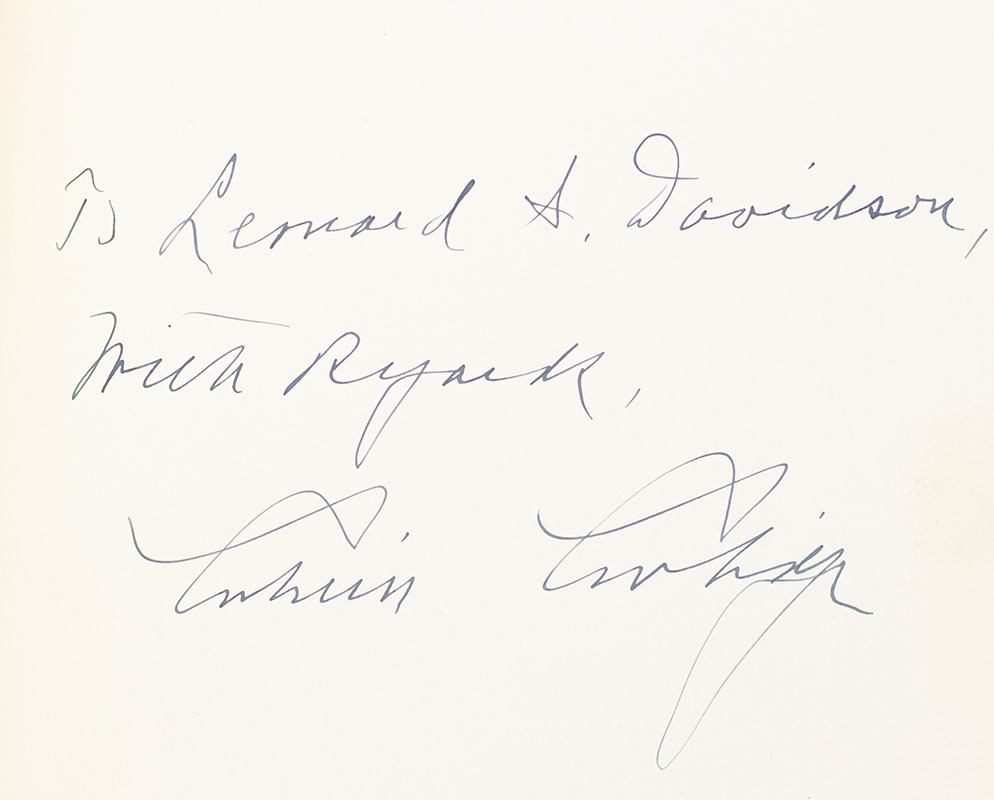 To Leonard S. Davidson,
With Regards,
Calvin Coolidge